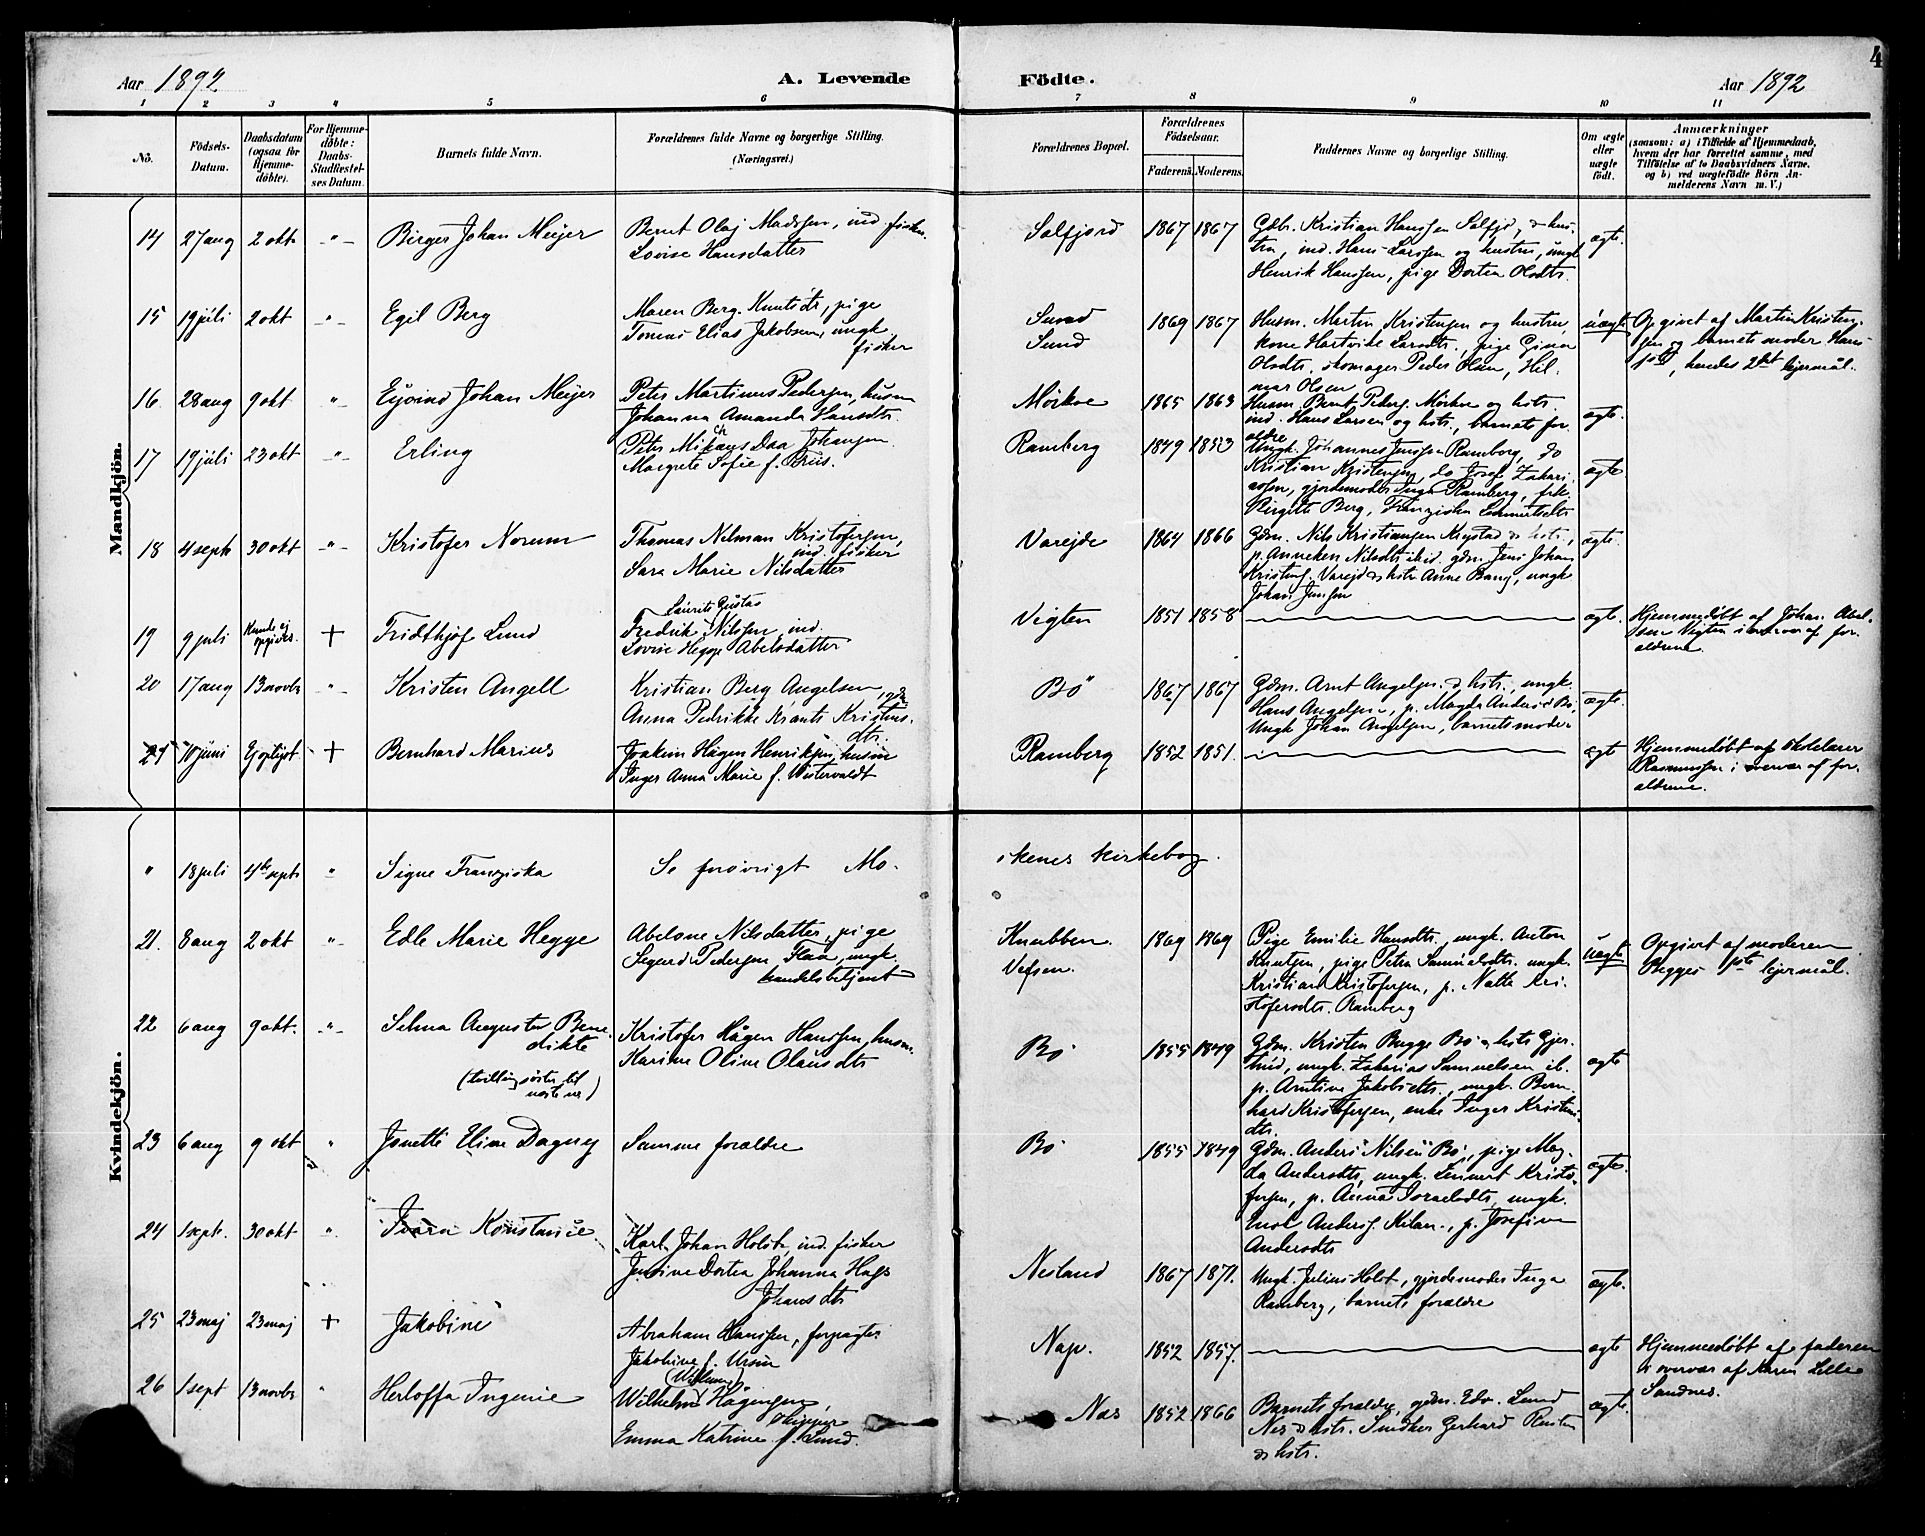 4
Aar 1892 A. Levende Födte. Aar 1892
1 2 3 4 5 6 7 8 9 10 11
No.
Födsels-Datum.
Daabsdatum (ogsaa for Hjemme-döbte).
For Hjemme-döbte: Daabs-Stadfæstel-ses Datum.
Barnets fulde Navn.
Forældrenes fulde Navne og borgerlige Stilling.
(Næringsvei.)
Forældrenes Bopæl.
Forældrenes Födselsaar.
Faderens. Moderens.
Faddernes Navne og borgerlige Stilling.
Om ægte eller uægte födt.
Anmærkninger
(saasom: a) i Tilfælde af Hjemmedaab, hvem der har forrettet samme, med Tilföielse af to Daabsvidners Navne, og b) ved uægtefödte Börn An-melderens Navn m. V.)
Mandkjön.
14 27 aug 2 okt -"- Birger Johan Meijer
Bernt Olaj Madssen, ind. fisker
Lovise Hansdatter
Solfjord 1867 1867
Gdbr. Kristian Hanssen Solfjd, & hus-
tru, ind. Hans Larssen og hustru, ungk
Henrik Hanssen, pige Dortea Olsdtr.
ægte.
15 19 júli 2 okt -"- Egil Berg
Maren Berg Knutsdtr, pige
Tomas Elias Jakobsen, ungk.
fisker
Sund
Sund
1869 1867
Husm. Martin Kristensen og hustru
kone Hartvike Larsdtr., pige Gina
Olsdtr. skomager Peder Olsen, Hil-
mar Olsen
uægte
Opgivet af Martin Kristen-
sen og barnets moder
, hendes 2det lejermål.
16 28 aug 9 okt " Ejvind Johan Meijer
Peter Martinus Pedersen, husm
Johanna Amanda Hansdtr.
Mörkve 1865 1863
Husm. Bernt Peders. Mörkve og hstr.
ind. Hans Larsen og hstr., barnets for-
ældre
ægte.
17 19 júli 23 okt -"- Erling
Peter Mikael Daa Johansen
Margrete Sofie f. Brus.
Ramberg 1849 1853
Ungk. Johannes Jenssen Ramberg, do
Kristian Kristensen, do Josef Zakari-
assen, gjordemoder Inga Ramberg, frk.
Birgitte Berg, Franziska Lennertsdtr
ægte
18 4 septr 30 okt -"- Kristofer Norum
Thomas Nilman Kristofersen,
ind. fisker
Sara Marie Nilsdatter
Varejde 1864 1866
Gdm. Nils Kristiansen Krystad & hstr.,
p. Anneken Nilsdtr ibid. gdm. Jens Johan
Kristens. Varejd & hstr Anne Bang, ungk
Johan Jensen
ægte.
19 9 juli Kunde ej opgives. + Fridthjof Lund
Laurits Gustav
Fredrik Nilssen, ind.
Lovise Hegge Abelsdatter
Vigten 1851 1858
ægte.
Hjemmedöbt af Johan Abel-
sen Vigten i overvær af for-
ældrene.
20 17 aug 13 novbr " Kristen Angell
Kristian Berg Angelsen, gdm
Anna Pedrikke Krants Kristens-
dtr.
Bö 1867 1867
Gdm. Arnt Angelsen & hstr., ungk.
Hans Angelsen, p. Magda Andersd Bö,
Ungk Johan Angelsen, barnets moder
ægte.
21 10 juni Ej oplyst + Bernhard Marius
Joakim Hågen Henriksen, husm
Inger Anna Marie f. Wistervoldt
Ramberg 1852 1851.
ægt
Hjemmedöbt af skolelærer
Rasmussen i overvær af for-
ældrene.
Kvindekjön.
" 18 juli 4de septr " Signe Franziska
Se forövrigt Mo-
skenes kirkebog.
21. 8 aug 2 okt -"- Edle Marie Hegge
Abelone Nilsdatter, pige
Sigurd Pedersen Flaa, ungk.
handelsbetjent
Knubben.
Vefsen.
1869 1869
Pige Emilie Hansdtr, ungk. Anton
Knutsen, pige Petra Samuelsdtr. ungk.
Kristian Kristofersen, p. Nalle Kri-
stofersdtr. Ramberg
uægte
Opgivet af moderen
Begges 1ste lejermål.
22 6 aug 9 okt. -"- Selma Augusta Bene-
dikte
(tvillingsöster til
næste nr)
Kristofer Hågen Hanssen, husm.
Karine Oline Olausdtr
Bö 1855 1849
Gdm. Kristen Bugge Bö & hstr Gjer-
trud, ungk. Zakarias Samuelsen ib.
p. Arntine Jakobsdtr., ungk. Bern-
hard Kristofersen, enke Inger Kristens
dtr.
ægte
23 6 aug 9 okt " Jonette Eline Dagny
Samme forældre
Bö 1855 1849
Gdm. Anders Nilsen Bö, pige Mag-
da Andersdtr, ungk. Lennert Kristo-
fersen, p. Anna Israelsdtr, ungk.
Enok Anders. Kilan., p. Josefine
Andersdtr
ægte.
24 1 septr. 30 okt " Konstanse
Karl Johan Holst, ind. fisker
Jensine Dortea Johanna Hags
Johansdtr
Nesland 1867 1871.
Ungk. Julius Holst, gjordemoder Inga
Ramberg, barnets forældre
ægte.
25 23 maj 23 maj + Jakobine
Abraham Hanssen, forpagter
Jakobine f. Ursin
Nap. 1852 1857.
ægte
Hjemmedöbt af faderen
i overvær af Karen Lille
Sandnes.
26 1 sept 13 novbr " Herloffa Ingenie
Wilhelm Hågensen,
skipper
Emma Katrine f. Lund.
Næs 1852 1866
Barnets forældre, gdm. Edv. Lund
Næs & hstr. Snedker Gerhard
& hstr.
ægte.